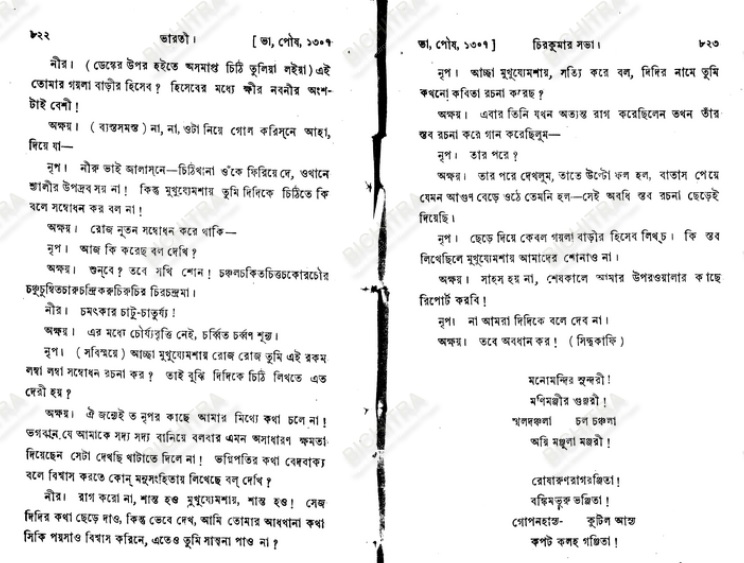 ৮২২
ভারতী।
[ ভা, পৌষ, ১৩০৭
নীর। (ডেস্কের উপর হইতে অসমাপ্ত চিঠি তুলিয়া লইয়া) এই
তোমার গয়লা বাড়ীর হিসেব? হিসেবের মধ্যে ক্ষীর নবনীর অংশ-
টাই বেশী!
অক্ষয়। (ব্যস্তসমস্ত) না, না, ওটা নিয়ে গোল করিস্‌নে আহা,
দিয়ে যা—
নৃপ। নীরু ভাই জালাস্‌নে—চিঠিখানা ওঁকে ফিরিয়ে দে, ওখানে
শ্যালীর উপদ্রব সয় না! কিন্তু মুখুয্যেমশায় তুমি দিদিকে চিঠিতে কি
বলে সম্বোধন কর বল না!
অক্ষয়। রোজ নূতন সম্বোধন করে থাকি—
নৃপ। আজ কি করেছ বল দেখি?
অক্ষয়। শুন্‌বে? তবে সখি শোন! চঞ্চলচকিতচিত্তচকোরচৌর
চঞ্চুচুম্বিতচারুচন্দ্রিকরুচিরুচির চিরচন্দ্রমা।
নীর। চমৎকার চাটু-চাতুর্য্য!
অক্ষয়। এর মধ্যে চৌর্য্যবৃত্তি নেই, চর্ব্বিত চর্ব্বণ শূন্য।
নৃপ। (সবিস্ময়ে) আচ্ছা মুখুয্যেমশায় রোজ রোজ তুমি এই রকম
লম্বা লম্বা সম্বোধন রচনা কর? তাই বুঝি দিদিকে চিঠি লিখতে এত
দেরী হয়?
অক্ষয়। ঐ জন্যেই ত নৃপর কাছে আমার মিথ্যে কথা চলে না!
ভগবান্ যে আমাকে সদ্য সদ্য বানিয়ে বলবার এমন অসাধারণ ক্ষমতা
দিয়েছেন সেটা দেখছি খাটাতে দিলে না! ভগ্নিপতির কথা বেদবাক্য
বলে বিশ্বাস করতে কোন্ মনুসংহিতায় লিখেছে বল্ দেখি?
নীর। রাগ করো না, শান্ত হও মুখুয্যেমশায়, শান্ত হও! সেজ
দিদির কথা ছেড়ে দাও, কিন্তু ভেবে দেখ, আমি তোমার আধখানা কথা
সিকি পয়সাও বিশ্বাস করিনে, এতেও তুমি সান্ত্বনা পাও না?
ভা, পৌষ, ১৩০৭ ]
চিরকুমার সভা।
৮২৩
নৃপ। আচ্ছা মুখুয্যেমশায়, সত্যি করে বল, দিদির নামে তুমি
কখনো কবিতা রচনা করেছ?
অক্ষয়। এবার তিনি যখন অত্যন্ত রাগ করেছিলেন তখন তাঁর
স্তব রচনা করে গান করেছিলুম—
নৃপ। তার পরে?
অক্ষয়। তার পরে দেখলুম, তাতে উল্টো ফল হল, বাতাস পেয়ে
যেমন আগুন বেড়ে ওঠে তেমনি হল—সেই অবধি স্তব রচনা ছেড়েই
দিয়েছি।
নৃপ। ছেড়ে দিয়ে কেবল গয়লা বাড়ীর হিসেব লিখ্‌চ। কি স্তব
লিখেছিলে মুখুয্যেমশায় আমাদের শোনাও না।
অক্ষয়। সাহস হয় না, শেষকালে আমার উপরওয়ালার কাছে
রিপোর্ট করবি!
নৃপ। না আমরা দিদিকে বলে দেব না।
অক্ষয়। তবে অবধান কর! (সিন্ধুকাফি)
মনোমন্দির সুন্দরী!
মণিমঞ্জীর গুঞ্জরী!
স্খলদঞ্চলা চল চঞ্চলা
অয়ি মঞ্জুলা মঞ্জরী!
রোষারুণরাগরঞ্জিতা!
বঙ্কিমভুরু ভঙ্গিতা!
গোপনহাস্য- কুটিল আস্য
কপট কলহ গঞ্জিতা!